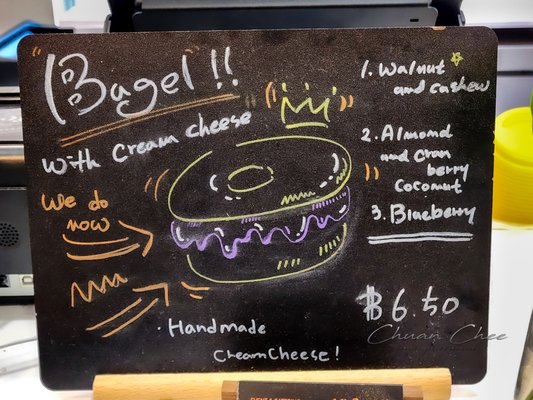 Bagel!!
with cream cheese
we do
now
1. Walnut
and cashew
2. Almomd
and cran
berry
coconut
3. Blueberry
$6.50
Chuan Chee
· Handmade
creamCheese!